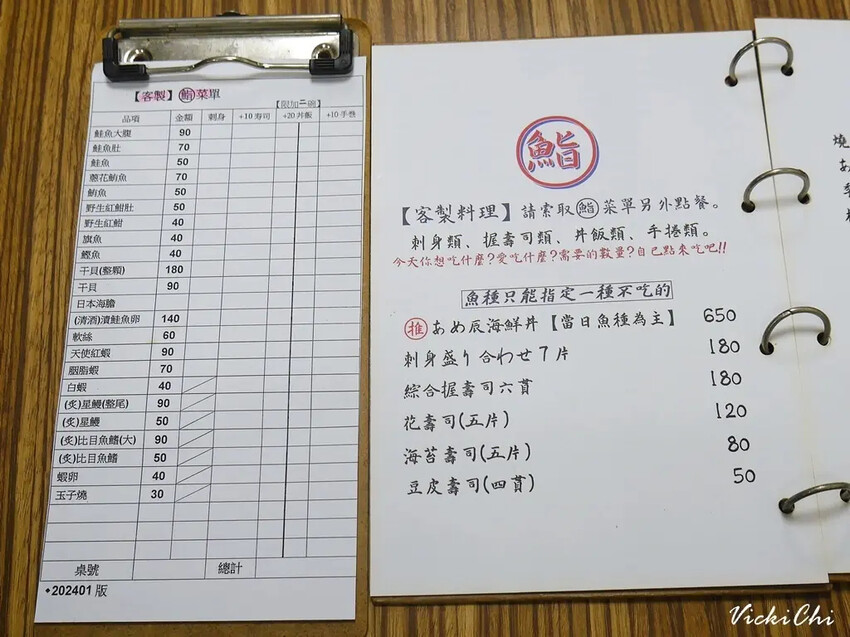 【客製】鮨菜單
【限加一碗】
品項 金額 刺身 +10寿司 +20丼飯 +10手卷
鮭魚大腹 90
鮭魚肚 70
鮭魚 50
蔥花鮪魚 70
鮪魚 50
野生紅魽肚 50
野生紅魽 40
旗魚 40
鰹魚 40
干貝(整顆) 180
干貝 90
日本海膽
(清酒)漬鮭魚卵 140
軟絲 60
天使紅蝦 90
胭脂蝦 70
白蝦 40
(炙)星鰻(整尾) 90
(炙)星鰻 50
(炙)比目魚鰭(大) 90
(炙)比目魚鰭 50
蝦卵 40
玉子燒 30
桌號 總計
◆202401 版
鮨
【客製料理】請索取鮨菜單另外點餐。
刺身類、握壽司類、丼飯類、手捲類。
今天你想吃什麼?愛吃什麼?需要的數量?自己點來吃吧!!
魚種只能指定一種不吃的
推 あめ辰海鮮丼【當日魚種為主】 650
刺身盛り合わせ7片 180
綜合握壽司六貫 180
花壽司(五片) 120
海苔壽司(五片) 80
豆皮壽司(四貫) 50
燒
あ
VickiChi